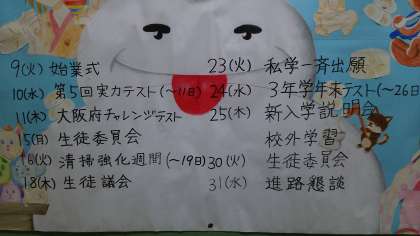 9(火) 始業式
10(水) 第5回実力テスト(〜11日)
11(木) 大阪府チャレンジテスト
15(月) 生徒委員会
16(火) 清掃強化週間(〜19日)
18(木) 生徒議会
23(火) 私学一斉出願
24(水) 3年学年末テスト(〜26日
25(木) 新入学説明会
校外学習
30(火) 生徒委員会
31(水) 進路懇談